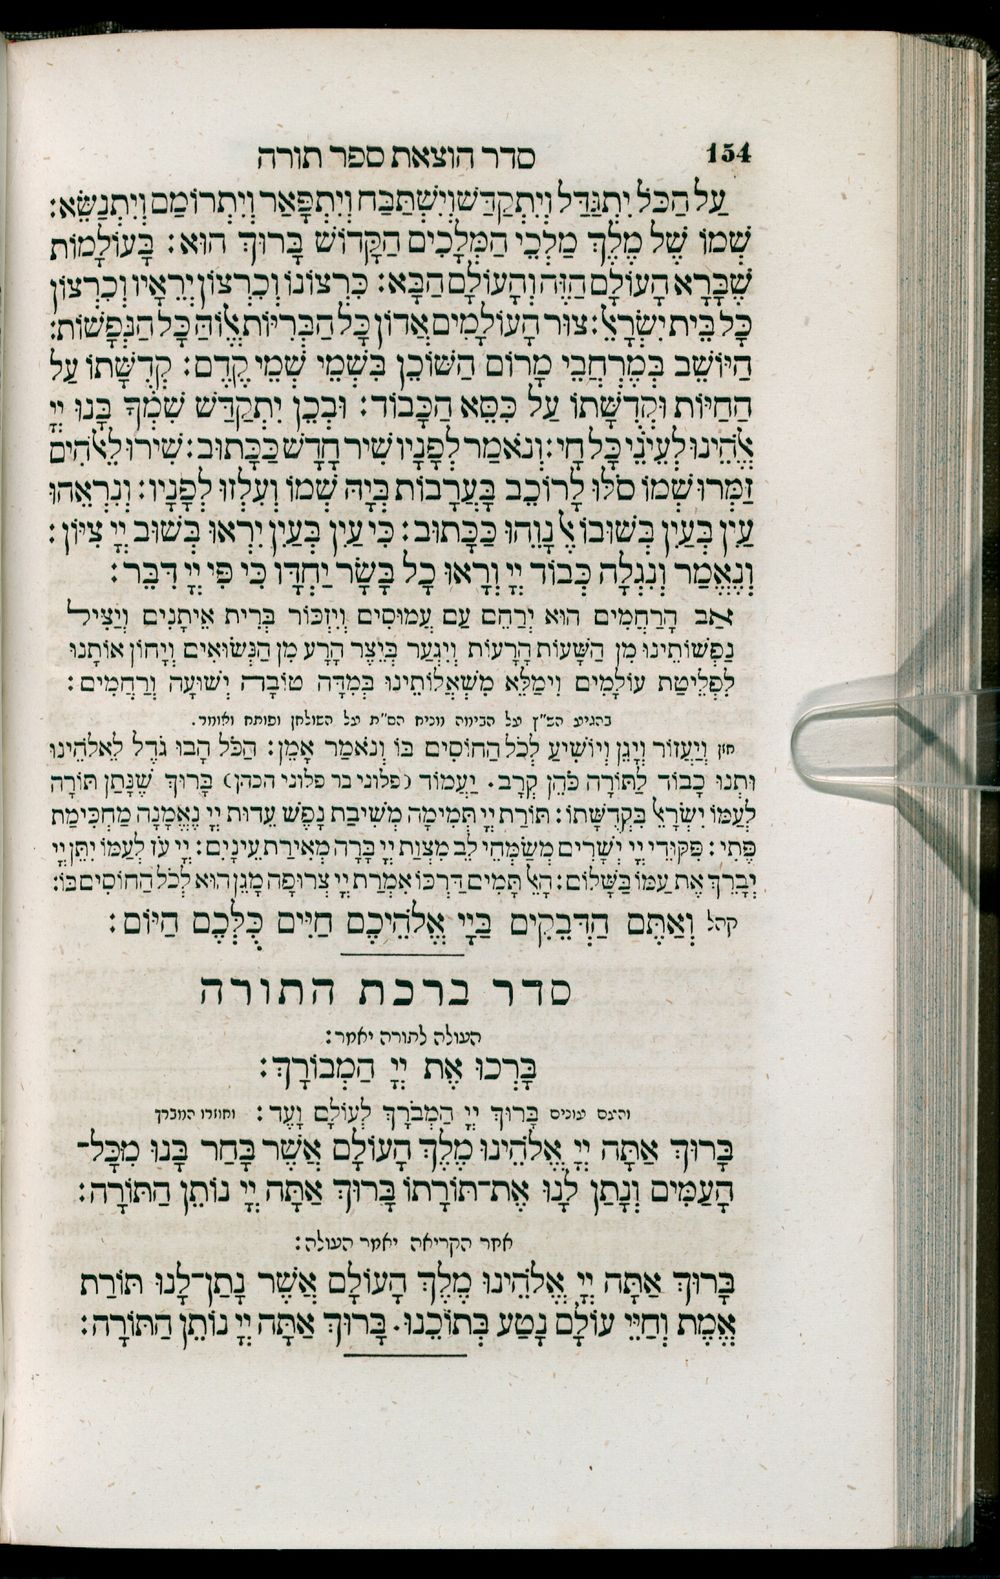 154 סדר הוצאת ספר תורה
עַל הַכֹּל יִתְגַּדַּל וְיִתְקַדַּשׁ וְיִשְׁתַּבַּח וְיִתְפָּאַר וְיִתְרוֹמַם וְיִתְנַשֵּׂא:
שְׁמוֹ שֶׁל מֶלֶךְ מַלְכֵי הַמְּלָכִים הַקָּדוֹשׁ בָּרוּךְ הוּא: בָּעוֹלָמוֹת
שֶׁבָּרָא הָעוֹלָם הַזֶּה וְהָעוֹלָם הַבָּא: כִּרְצוֹנוֹ וְכִרְצוֹן יְרֵאָיו וְכִרְצוֹן
כָּל בֵּית יִשְׂרָאֵל: צוּר הָעוֹלָמִים אֲדוֹן כָּל הַבְּרִיּוֹת אֱלוֹהַּ כָּל הַנְּפָשׁוֹת:
הַיּוֹשֵׁב בְּמֶרְחֲבֵי מָרוֹם הַשּׁוֹכֵן בִּשְׁמֵי שְׁמֵי קֶדֶם: קְדֻשָּׁתוֹ עַל
הַחַיּוֹת וּקְדֻשָּׁתוֹ עַל כִּסֵּא הַכָּבוֹד: וּבְכֵן יִתְקַדַּשׁ שִׁמְךָ בָּנוּ יְיָ
אֱלֹהֵינוּ לְעֵינֵי כָּל חָי: וְנֹאמַר לְפָנָיו שִׁיר חָדָשׁ כַּכָּתוּב: שִׁירוּ לֵאלֹהִים
זַמְּרוּ שְׁמוֹ סֹלּוּ לָרוֹכֵב בָּעֲרָבוֹת בְּיָהּ שְׁמוֹ וְעִלְזוּ לְפָנָיו: וְנִרְאֵהוּ
עַיִן בְּעַיִן בְּשׁוּבוֹ אֶל נָוֵהוּ כַּכָּתוּב: כִּי עַיִן בְּעַיִן יִרְאוּ בְּשׁוּב יְיָ צִיּוֹן:
וְנֶאֱמַר וְנִגְלָה כְּבוֹד יְיָ וְרָאוּ כָל בָּשָׂר יַחְדָּו כִּי פִּי יְיָ דִּבֵּר:
אַב הָרַחֲמִים הוּא יְרַחֵם עַם עֲמוּסִים וְיִזְכּוֹר בְּרִית אֵיתָנִים וְיַצִּיל
נַפְשׁוֹתֵינוּ מִן הַשָּׁעוֹת הָרָעוֹת וְיִגְעַר בְּיֵצֶר הָרָע מִן הַנְּשׂוּאִים וְיָחוֹן אוֹתָנוּ
לִפְלֵיטַת עוֹלָמִים וִימַלֵּא מִשְׁאֲלוֹתֵינוּ בְּמִדָּה טוֹבָה יְשׁוּעָה וְרַחֲמִים:
בהגיע הש״ץ על הבימה מניח הס״ת על השולחן ופותח ואומר.
חזן וְיַעֲזוֹר וְיָגֵן וְיוֹשִׁיעַ לְכֹל הַחוֹסִים בּוֹ וְנֹאמַר אָמֵן: הַכֹּל הָבוּ גֹדֶל לֵאלֹהֵינוּ
וּתְנוּ כָבוֹד לַתּוֹרָה כֹּהֵן קְרָב. יַעֲמוֹד (פלוני בר פלוני הכהן) בָּרוּךְ שֶׁנָּתַן תּוֹרָה
לְעַמּוֹ יִשְׂרָאֵל בִּקְדֻשָּׁתוֹ: תּוֹרַת יְיָ תְּמִימָה מְשִׁיבַת נָפֶשׁ עֵדוּת יְיָ נֶאֱמָנָה מַחְכִּימַת
פֶּתִי: פִּקּוּדֵי יְיָ יְשָׁרִים מְשַׂמְּחֵי לֵב מִצְוַת יְיָ בָּרָה מְאִירַת עֵינָיִם: יְיָ עֹז לְעַמּוֹ יִתֵּן יְיָ
יְבָרֵךְ אֶת עַמּוֹ בַּשָּׁלוֹם: הָאֵל תָּמִים דַּרְכּוֹ אִמְרַת יְיָ צְרוּפָה מָגֵן הוּא לְכֹל הַחוֹסִים בּוֹ:
קהל וְאַתֶּם הַדְּבֵקִים בַּיְיָ אֱלֹהֵיכֶם חַיִּים כֻּלְּכֶם הַיּוֹם:
סדר ברכת התורה
העולה לתורה יאמר:
בָּרְכוּ אֶת יְיָ הַמְבוֹרָךְ:
והעם עונים בָּרוּךְ יְיָ הַמְבֹרָךְ לְעוֹלָם וָעֶד: וחוזר המברך
בָּרוּךְ אַתָּה יְיָ אֱלֹהֵינוּ מֶלֶךְ הָעוֹלָם אֲשֶׁר בָּחַר בָּנוּ מִכָּל־
הָעַמִּים וְנָתַן לָנוּ אֶת־תּוֹרָתוֹ בָּרוּךְ אַתָּה יְיָ נוֹתֵן הַתּוֹרָה:
אחר הקריאה יאמר העולה:
בָּרוּךְ אַתָּה יְיָ אֱלֹהֵינוּ מֶלֶךְ הָעוֹלָם אֲשֶׁר נָתַן־לָנוּ תּוֹרַת
אֱמֶת וְחַיֵּי עוֹלָם נָטַע בְּתוֹכֵנוּ. בָּרוּךְ אַתָּה יְיָ נוֹתֵן הַתּוֹרָה: